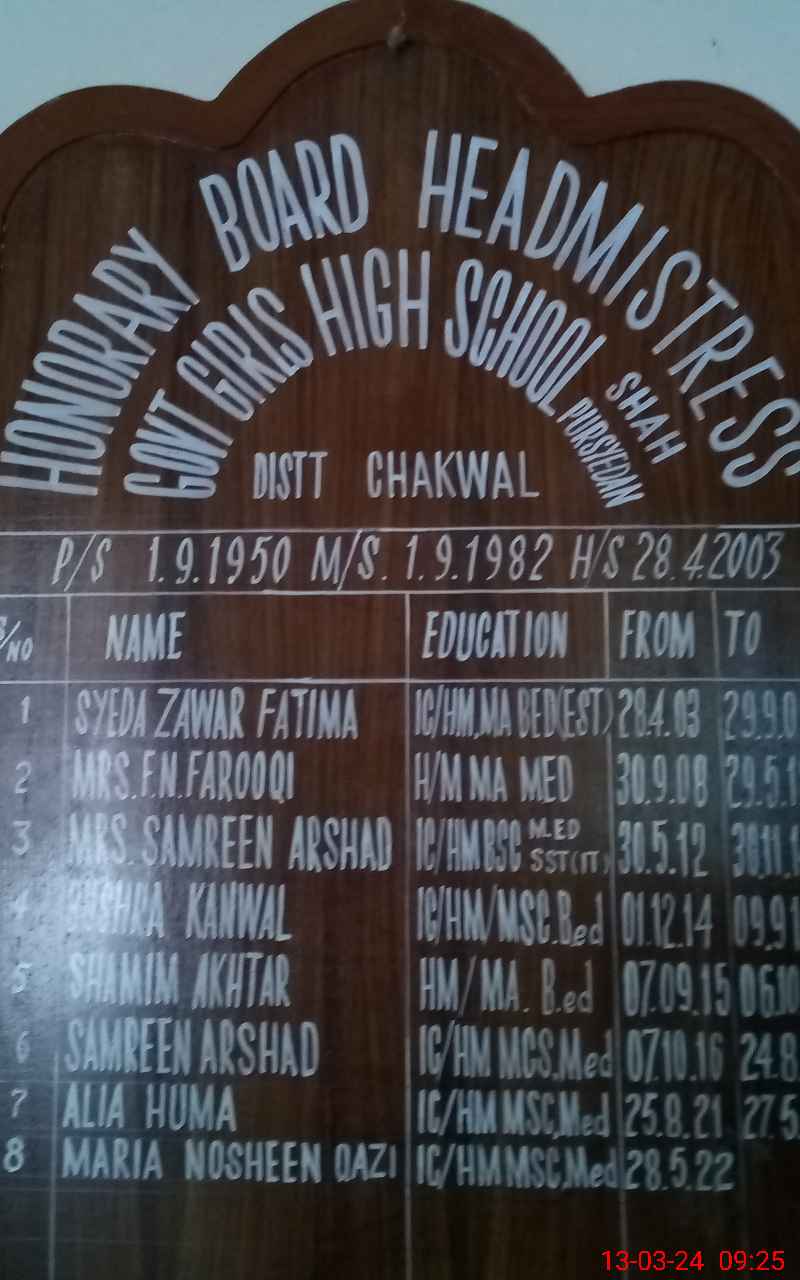 HONORARY BOARD HEADMISTRESS
GOVT GIRLS HIGH SCHOOL SHAH PURSYEDAN
DISTT CHAKWAL
P/S 1.9.1950 M/S. 1.9.1982 H/S 28.4.2003
S/NO NAME EDUCATION FROM TO
1 SYEDA ZAWAR FATIMA IC/HM,MA BED(EST) 28.4.03 29.9.0
2 MRS.F.N.FAROOQI H/M MA MED 30.9.08 29.5.1
3 MRS. SAMREEN ARSHAD IC/HM BSC M.ED SST(IT) 30.5.12 30.11.1
4 BUSHRA KANWAL IC/HM/MSC.B.ed 01.12.14 09.9
5 SHAMIM AKHTAR HM/MA. B.ed 07.09.15 06.10
6 SAMREEN ARSHAD IC/HM MCS,M.ed 07.10.16 24.8
7 ALIA HUMA IC/HM MSC,M.ed 25.8.21 27.5
8 MARIA NOSHEEN QAZI IC/HM MSC,M.ed 28.5.22
13-03-24 09:25